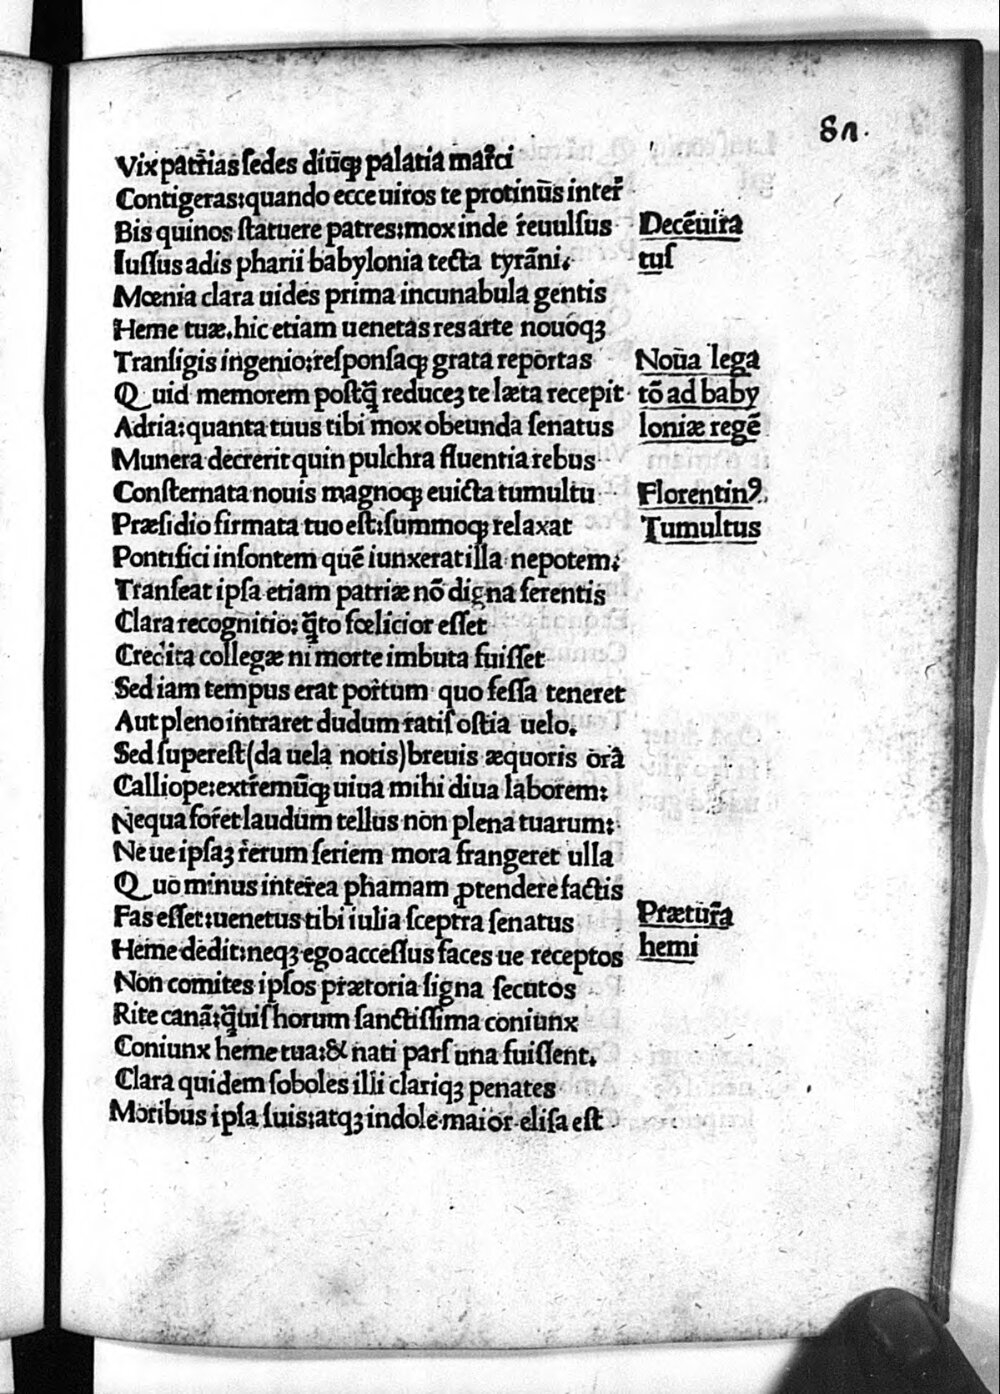 81.
Vix patrias ſedes diūq; palatia marci
Contigeras:quando ecce uiros te protinūs inter
Bis quinos ſtatuere patres:mox inde reuulſus
Decēuira
Iuſſus adis pharii babylonia tecta tyrāni.
tuſ
Mœnia clara uides prima incunabula gentis
Heme tuæ.hic etiam uenetas res arte nouoq;
Tranſigis ingenio:reſponſaq; grata reportas
Noūa lega
Quid memorem poſtq̄ reducez te læta recepit
tō ad baby
Adria:quanta tuus tibi mox obeunda ſenatus
loniæ regē
Munera decrerit quin pulchra fluentia rebus
Conſternata nouis magnoq; euicta tumultu
Florentinꝰ
Præſidio firmata tuo eſt:ſummoq; relaxat
Tumultus
Pontifici inſontem quē iunxerat illa nepotem:
Tranſeat ipſa etiam patriæ nō digna ferentis
Clara recognitio: q̄to fœlicior eſſet
Credita collegæ ni morte imbuta fuiſſet
Sed iam tempus erat portum quo feſſa teneret
Aut pleno intraret dudum ratiſ oſtia uelo.
Sed ſupereſt(da uela notis)breuis æquoris ora
Calliope:extremūq; uiua mihi diua laborem:
Nequa foret laudum tellus non plena tuarum:
Ne ue ipſaz rerum ſeriem mora frangeret ulla
Quo minus interea phamam ꝓtendere factis
Fas eſſet:uenetus tibi iulia ſceptra ſenatus
Prætura
Heme dedit:neq; ego acceſſus faces ue receptos
hemi
Non comites ipſos prætoria ſigna ſecutos
Rite canā:q̄uiſ horum ſanctiſſima coniunx
Coniunx heme tua:& nati parſ una fuiſſent.
Clara quidem ſoboles illi clariq; penates
Moribus ipſa ſuis:atq; indole maior eliſa eſt